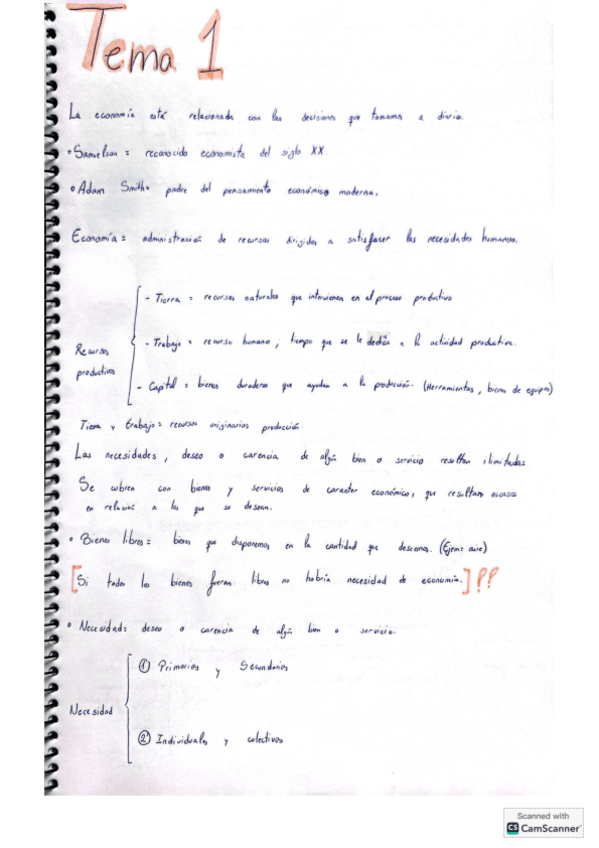 Tema 1
La economía está relacionada con las decisiones que tomamos a diario.
• Samuelson = reconocido economista del siglo XX.
• Adam Smith = padre del pensamiento económico moderna.
Economía = administración de recursos dirigidos a satisfacer las necesidades humanas.
- Tierra = recursos naturales que intervienen en el proceso productivo
Recursos productivos
- Trabajo = recurso humano, tiempo que se le dedica a la actividad productiva.
- Capital = bienes duraderos que ayudan a la producción. (Herramientas, bienes de equipos)
Tierra y trabajo = recursos originarios producción
Las necesidades, deseo o carencia de algún bien o servicio resultan ilimitadas
Se cubren con bienes y servicios de caracter económico, que resultan escasos
en relación a los que se desean.
• Bienes libres = bienes que disponemos en la cantidad que deseamos. (Ejem: aire)
[Si todos los bienes fueran libres no habría necesidad de economía.] ??
• Necesidad: deseo o carencia de algún bien o servicio.
① Primarias y Secundarias
Necesidad
② Individuales y colectivas
Scanned with
CS CamScanner